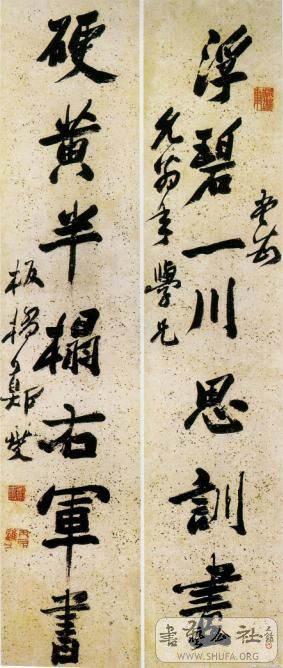 浮碧一川思訓畫
允翁年學兄
硬黃半榻右軍書
板橋鄭燮
書藝公社
WWW.SHUFA.ORG